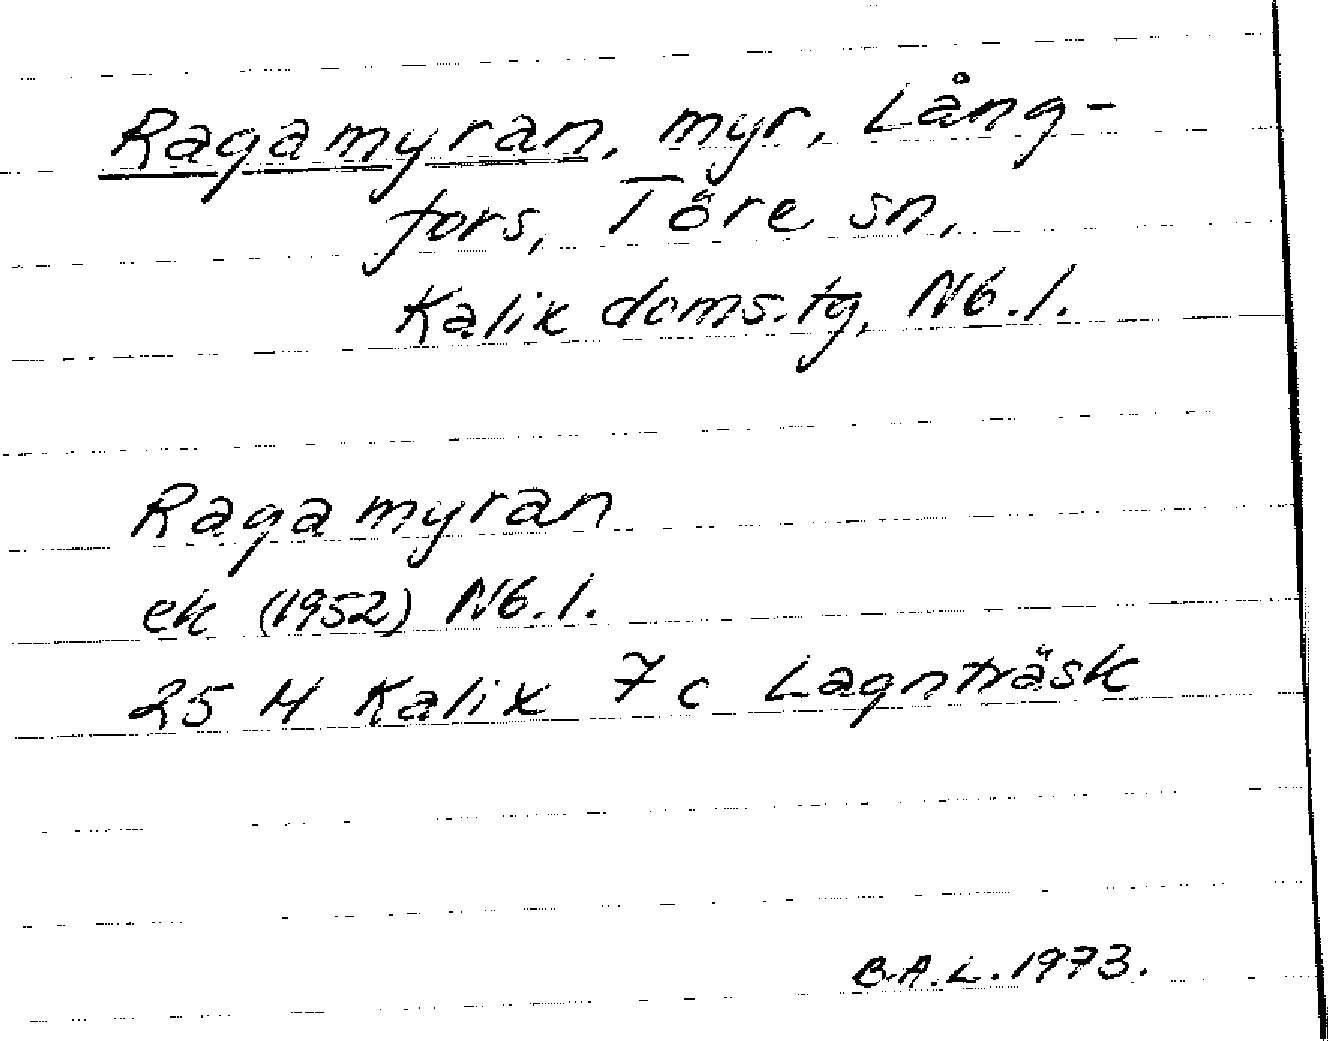 Ragamyran, myr, Lång-
fors, Töre sn,
Kalix doms.tg, Nb.l.
Ragamyran
ek (1952) Nb.l.
25 M Kalix 7c Lagnträsk
B.A.L. 1973.